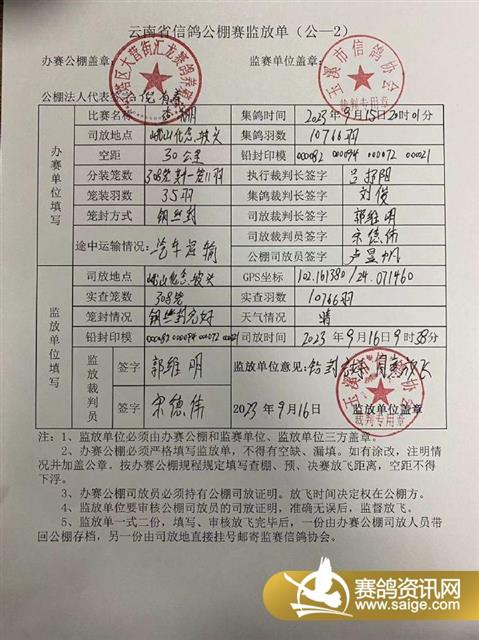 云南省信鸽公棚赛监放单（公—2）
办赛公棚盖章： 监赛单位盖章：
区大营街汇龙赛鸽养殖
玉溪市信鸽协会
裁判专用章
公棚法人代表签
办赛单位填写
比赛名称 集鸽时间 2023年9月15日20时01分
司放地点 峨山化念坡头 集鸽羽数 10766羽
空距 30公里 铅封印模 000082 000094 000072 000021
分装笼数 执行裁判长签字
笼装羽数 35羽 集鸽裁判长签字 刘俊
笼封方式 钢丝封 司放裁判长签字 郭维明
途中运输情况： 汽车运输 司放裁判员签字 宋德伟
公棚司放员签字 卢显帆
监放单位填写
司放地点 峨山化念坡头 GPS坐标 102.161380/24.071460
实查笼数 308笼 实查羽数 10766羽
笼封情况 钢丝封完好 天气情况 晴
铅封印模 000082 000094 000072 000021 司放时间 2023年9月16日9时38分
监放裁判员 签字 郭维明 监放单位意见： 铅封完好 同意放飞
签字 宋德伟 2023年9月16日 监放单位盖章
玉溪市信鸽协会
裁判专用章
注：1、监放单位必须由办赛公棚和监赛单位、监放单位三方盖章。
2、办赛公棚必须严格填写监放单，不得有空缺、漏填。如有涂改，注明情
况并加盖公章。按办赛公棚规程规定填写查棚、预、决赛放飞距离，空距不得
下浮。
3、办赛公棚司放员必须持有公棚司放证明。放飞时间决定权在公棚方。
4、监放单位要审核公棚司放员的司放证明，准确无误后，监督放飞。
5、监放单一式二份，填写、审核放飞完毕后，一份由办赛公棚司放人员带
回公棚存档，另一份由司放地直接挂号邮寄监赛信鸽协会。
赛鸽资讯网
www.saige.com